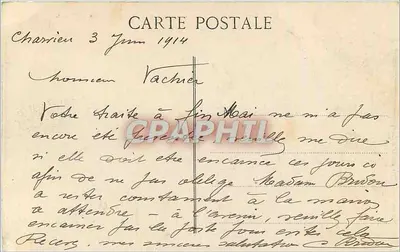 CARTE POSTALE
Charrieu 3 Juin 1914
Monsieur Vachier
Votre traite à fin Mai ne m'a pas
encore été présentée veuillez me dire
si elle doit être encaissée ces jours ci
afin de ne pas obliger Madam
a rester constament à la maison
a attendre - à l'avenir, veuillez faire
encaisser par la poste
mes sincères salutations
CPAPHIL